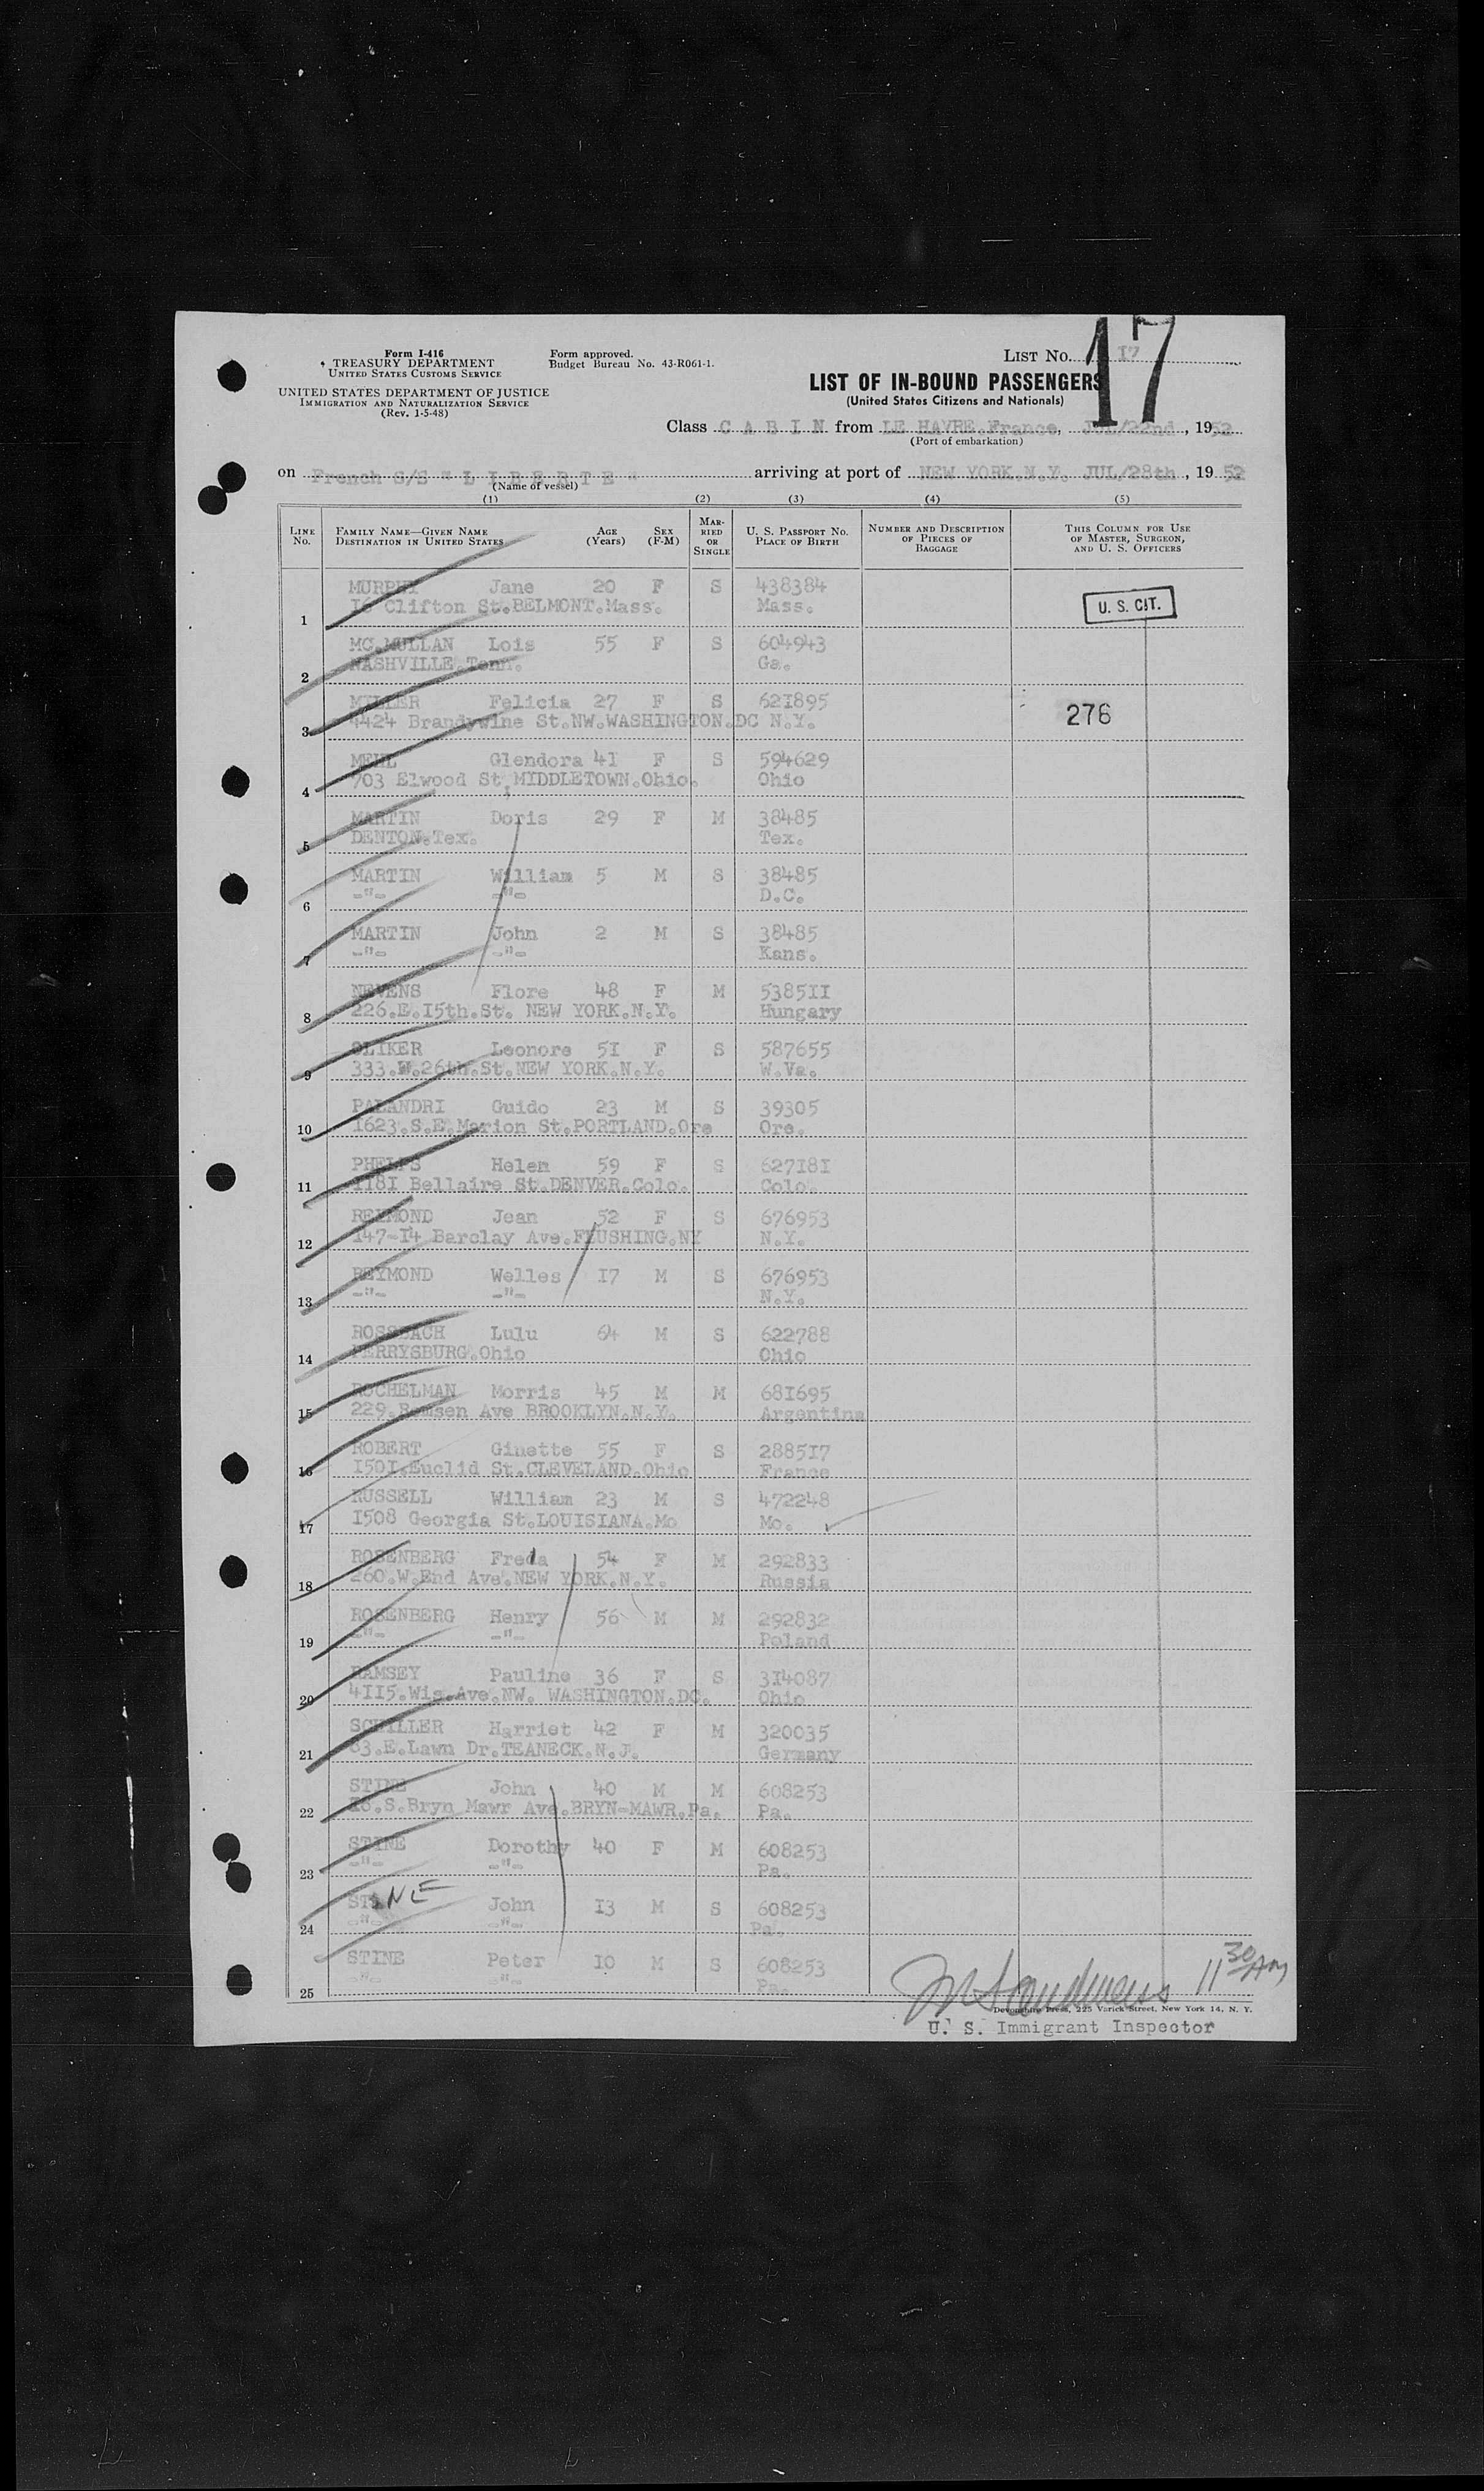 Form I-416
TREASURY DEPARTMENT
UNITED STATES CUSTOMS SERVICE
UNITED STATES DEPARTMENT OF JUSTICE
IMMIGRATION AND NATURALIZATION SERVICE
(Rev. 1-5-48)
Form approved.
Budget Bureau No. 43-R061-1.
LIST NO. 17
17
LIST OF IN-BOUND PASSENGERS
(United States Citizens and Nationals)
Class C A B I N from LE HAVRE.France, JUL/22nd, 1952
(Port of embarkation)
on French S/S " L I B E R T E " arriving at port of NEW YORK.N.Y. JUL/28th, 1952
(Name of vessel)
(1) (2) (3) (4) (5)
LINE NO. FAMILY NAME—GIVEN NAME DESTINATION IN UNITED STATES AGE (Years) SEX (F-M) MARRIED OR SINGLE U. S. PASSPORT NO. PLACE OF BIRTH NUMBER AND DESCRIPTION OF PIECES OF BAGGAGE THIS COLUMN FOR USE OF MASTER, SURGEON, AND U. S. OFFICERS
MURPHY Jane 20 F S 438384
1 16 Clifton St.BELMONT.Mass. Mass. U. S. CIT.
MC.MULLAN Lois 55 F S 604943
2 NASHVILLE.Tenn. Ga.
MILLER Felicia 27 F S 621895
3 4424 Brandywine St.NW.WASHINGTON.DC N.Y. 276
MEHL Glendora 41 F S 594629
4 703 Elwood St,MIDDLETOWN.Ohio. Ohio
MARTIN Doris 29 F M 38485
5 DENTON.Tex. Tex.
MARTIN William 5 M S 38485
6 -"- -"- D.C.
MARTIN John 2 M S 38485
7 -"- -"- Kans.
NEVENS Flore 48 F M 538511
8 226.E.15th.St. NEW YORK.N.Y. Hungary
OLIKER Leonore 51 F S 587655
9 333.W.26th.St.NEW YORK.N.Y. W.Va.
PALANDRI Guido 23 M S 39305
10 1623.S.E.Marion St.PORTLAND.Ore Ore.
PHELPS Helen 59 F S 627181
11 1181 Bellaire St.DENVER.Colo. Colo.
REYMOND Jean 52 F S 676953
12 147-14 Barclay Ave.FLUSHING.NY N.Y.
REYMOND Welles 17 M S 676953
13 -"- -"- N.Y.
ROSSBACH Lulu 64 M S 622788
14 PERRYSBURG.Ohio Ohio
ROCHELMAN Morris 45 M M 681695
15 229.Remsen Ave BROOKLYN.N.Y. Argentina
ROBERT Ginette 55 F S 288517
16 1501.Euclid St.CLEVELAND.Ohio France
RUSSELL William 23 M S 472248
17 1508 Georgia St.LOUISIANA.Mo Mo.
ROSENBERG Freda 54 F M 292833
18 260.W.End Ave.NEW YORK.N.Y. Russia
ROSENBERG Henry 56 M M 292832
19 -"- -"- Poland
RAMSEY Pauline 36 F S 314087
20 4115.Wis.Ave.NW. WASHINGTON.DC. Ohio
SCHILLER Harriet 42 F M 320035
21 63.E.Lawn Dr.TEANECK.N.J. Germany
STINE John 40 M M 608253
22 S.Bryn Mawr Ave.BRYN-MAWR.Pa. Pa.
STINE Dorothy 40 F M 608253
23 -"- -"- Pa.
STINE John 13 M S 608253
24 -"- -"- Pa.
STINE Peter 10 M S 608253
25 -"- -"- Pa.
11 30 AM
Devonshire Press, 225 Varick Street, New York 14, N. Y.
U. S. Immigrant Inspector